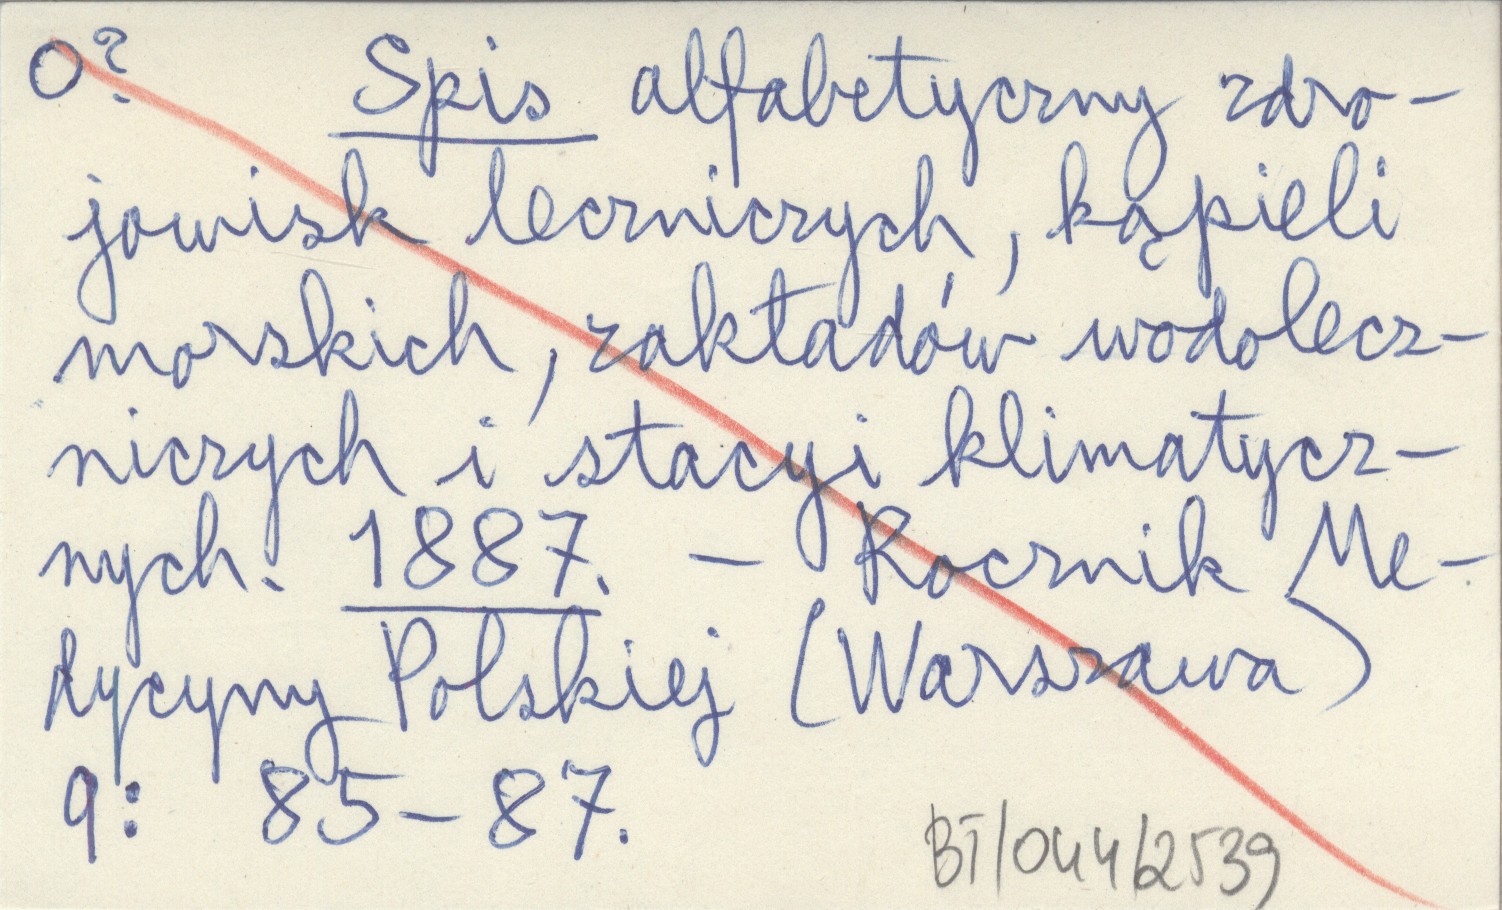 0? Spis alfabetyczny zdro-
jowisk leczniczych, kąpieli
morskich, zakładów wodolecz-
niczych i stacyi klimatycz-
nych. 1887. — Rocznik Me-
dycyny Polskiej (Warszawa)
9: 85-87.
BT/044/2539